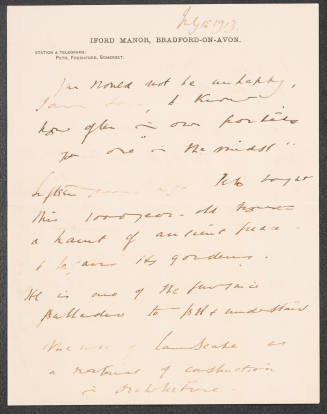 July 15 1913
IFORD MANOR, BRADFORD-ON-AVON.
STATION & TELEGRAMS:
PETO, FRESHFORD, SOMERSET.
You would not be unhappy,
I am sure, to know
how often in our
you are "in the midst"
Fifteen years ago Peto bought
this 1000 years old
a haunt of ancient peace
& began its gardens.
He is one of the
to feel & understand
the use of landscape as
a material of construction
in architecture.